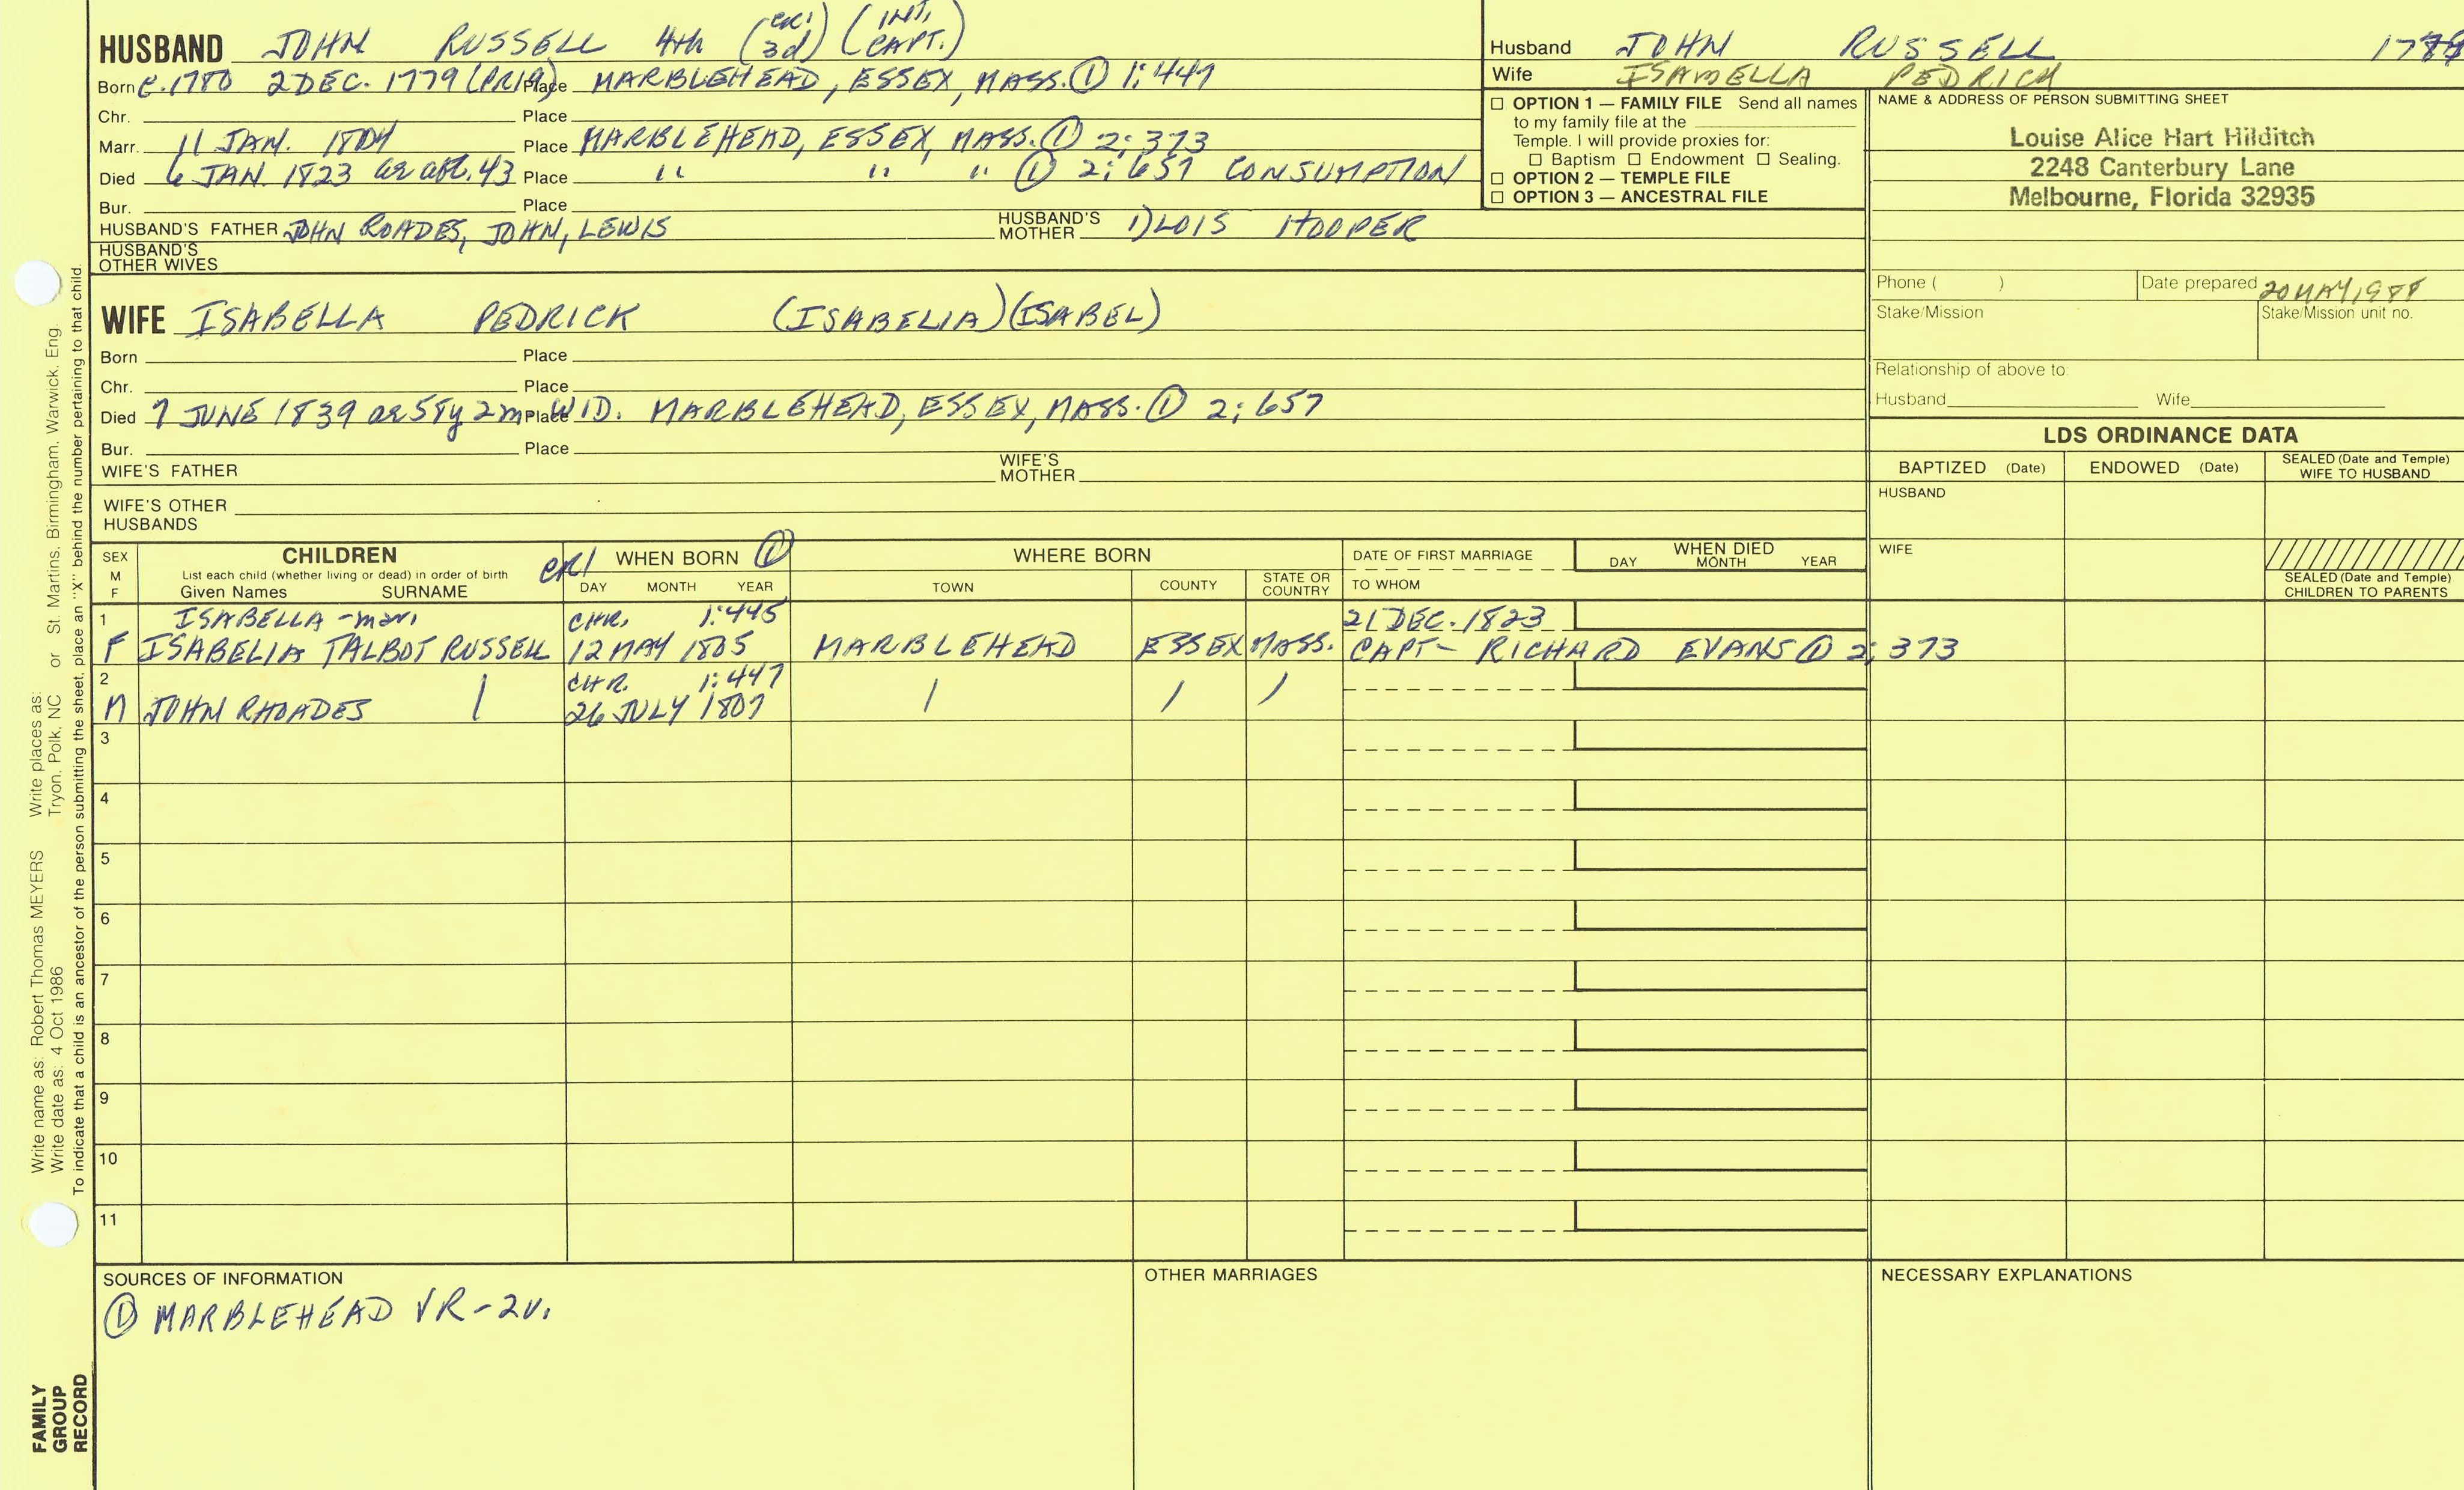 HUSBAND JOHN RUSSELL 4th (CR1 3d) (INT, CAPT.)
Born c.1780 2 DEC. 1779 (PR19) Place MARBLEHEAD, ESSEX, MASS. ① 1:447
Chr. Place
Marr. 11 JAN. 1804 Place MARBLEHEAD, ESSEX, MASS. ① 2:373
Died 6 JAN. 1823 ae abt. 43 Place " " " ① 2:657 CONSUMPTION
Bur. Place
HUSBAND'S FATHER JOHN ROADES, JOHN, LEWIS HUSBAND'S MOTHER 1) LOIS HOOPER
HUSBAND'S OTHER WIVES
WIFE ISABELLA PEDRICK (ISABELIA) (ISABEL)
Born Place
Chr. Place
Died 7 JUNE 1839 ae 58y 2m Place WID. MARBLEHEAD, ESSEX, MASS. ① 2:657
Bur. Place
WIFE'S FATHER WIFE'S MOTHER
WIFE'S OTHER HUSBANDS
Husband JOHN RUSSELL
Wife ISABELLA PEDRICK
☐ OPTION 1 — FAMILY FILE Send all names
to my family file at the
Temple. I will provide proxies for:
☐ Baptism ☐ Endowment ☐ Sealing.
☐ OPTION 2 — TEMPLE FILE
☐ OPTION 3 — ANCESTRAL FILE
NAME & ADDRESS OF PERSON SUBMITTING SHEET
Louise Alice Hart Hilditch
2248 Canterbury Lane
Melbourne, Florida 32935
Phone ( ) Date prepared 20 MAY 1988
Stake/Mission Stake/Mission unit no.
Relationship of above to:
Husband Wife
LDS ORDINANCE DATA
BAPTIZED (Date) ENDOWED (Date) SEALED (Date and Temple) WIFE TO HUSBAND
HUSBAND
WIFE
SEALED (Date and Temple)
CHILDREN TO PARENTS
SEX M F CHILDREN CR1 WHEN BORN ① WHERE BORN DATE OF FIRST MARRIAGE WHEN DIED
List each child (whether living or dead) in order of birth
Given Names SURNAME DAY MONTH YEAR TOWN COUNTY STATE OR COUNTRY TO WHOM DAY MONTH YEAR
1 ISABELLA -mar. CHR. 1:445 21 DEC. 1823
F ISABELIA TALBOT RUSSELL 12 MAY 1805 MARBLEHEAD ESSEX MASS. CAPT- RICHARD EVANS ① 2:373
2 CHR. 1:447
M JOHN RHOADES / 26 JULY 1807 / / /
3
4
5
6
7
8
9
10
11
SOURCES OF INFORMATION
① MARBLEHEAD VR-2v.
OTHER MARRIAGES
NECESSARY EXPLANATIONS
Write name as: Robert Thomas MEYERS Write places as:
Write date as: 4 Oct 1986 Tryon, Polk, NC or St. Martins, Birmingham, Warwick, Eng
To indicate that a child is an ancestor of the person submitting the sheet, place an "X" behind the number pertaining to that child.
FAMILY
GROUP
RECORD